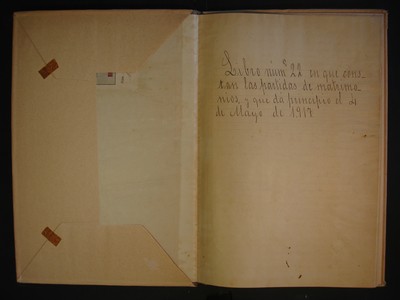 Libro núm° 22 en que cons-
tan las partidas de matrimo
nios y que da principio el 4
de Mayo de 1917